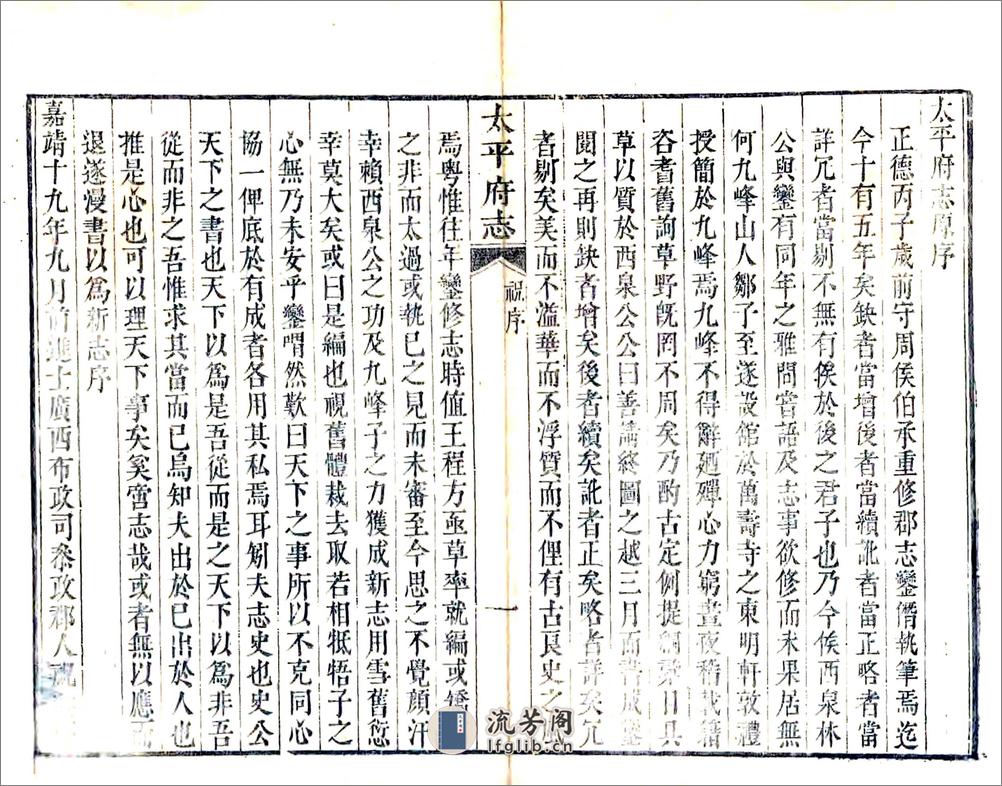 太平府志原序
正德丙子歲前守周侯伯承重修郡志鑾僭執筆焉迄
今十有五年矣缺者當增後者當續訛者當正略者當
詳冗者當剔不無有俟於後之君子也乃今侯西泉林
公與鑾有同年之雅間嘗語及志事欲修而未果居無
何九峰山人鄒子至遂設館於萬壽寺之東明軒敦禮
授簡於九峰焉九峰不得辭廼殫心力窮晝夜稽載籍
咨耆舊詢草野旣罔不周矣乃酌古定例提綱
草以質於西泉公公曰善請終圖之越三月而書成鑾
閱之再則缺者增矣後者續矣訛者正矣略者詳矣冗
者剔矣美而不溢華而不浮質而不俚有古良史之
太平府志
祝序
一
焉粤惟往年鑾修志時值王程方亟草率就編或
之非而太過或執已之見而未審至今思之不覺顏汗
幸賴西泉公之功及九峰子之力獲成新志用雪舊愆
幸莫大矣或曰是編也視舊體裁去取若相牴牾子之
心無乃未安乎鑾喟然歎曰天下之事所以不克同心
協一俾底於有成者各用其私焉耳矧夫志史也史公
天下之書也天下以爲是吾從而是之天下以爲非吾
從而非之吾惟求其當而已烏知夫出於已出於人也
推是心也可以理天下事矣奚啻志哉或者無以應而
退遂漫書以爲新志序
嘉靖十九年九月前進士廣西布政司叅政郡人祝
流芳阁
lfglib.cn